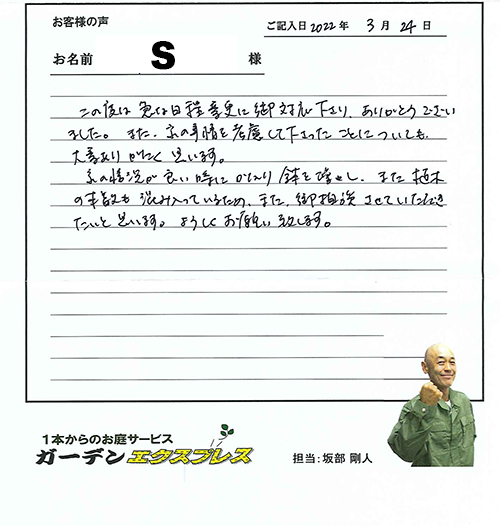 お客様の声
ご記入日 2022年 3月 24日
お名前 S 様
この度は 急な日程変更に御対応下さり、ありがとうござい
ました。また、私の事情を考慮して下さったことについても、
大変ありがたく思います。
私の状況が良い時に
また 植木
の本数も
ているため、また、御相談させていただき
たいと思います。よろしくお願い致します。
1本からのお庭サービス
ガーデンエクスプレス
担当:坂部 剛人